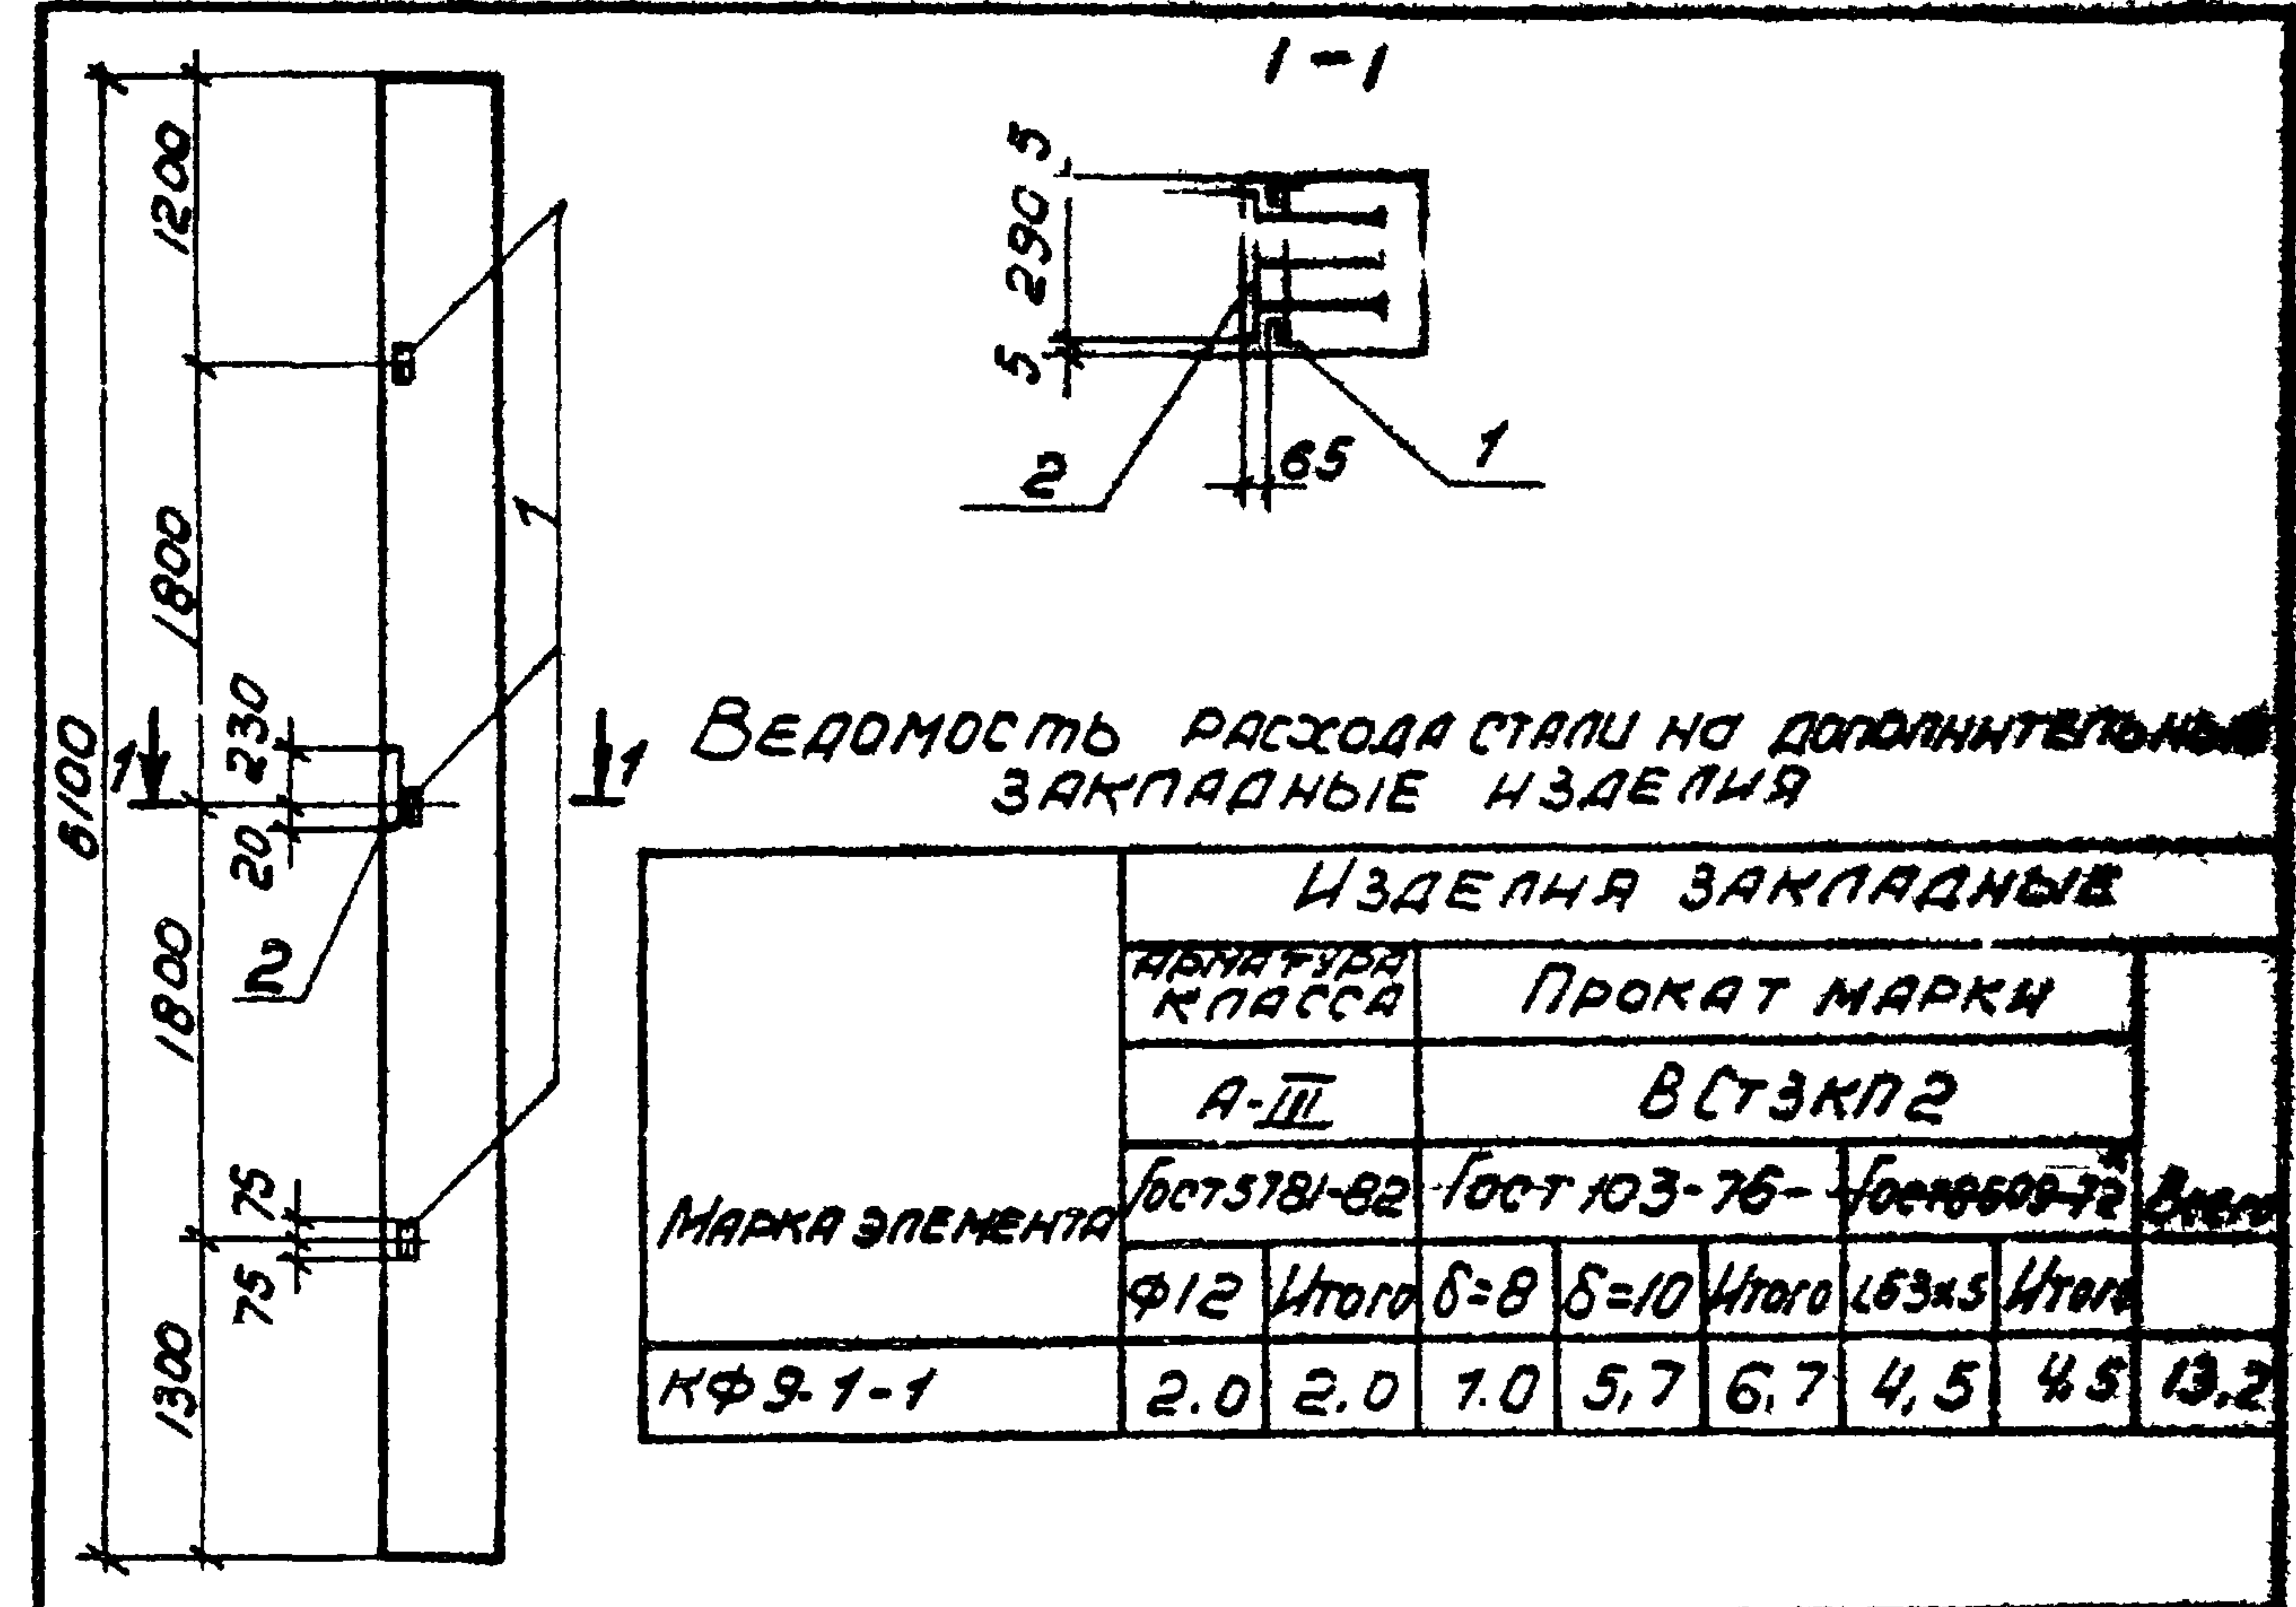 1-1
1200
1800
1800
1300
6100
230
20
75
75
1
1
1
2
5
290
5
65
2
1
Ведомость расхода стали на дополнительные
закладные изделия
Марка элемента
Изделия закладные
Арматура
класса
Прокат марки
Всего
А-III
ВСт3кп2
Гост 5781-82
Гост 103-76
Гост 8509-72
Ф12
Итого
δ=8
δ=10
Итого
L63x5
Итого
КФ9-1-1
2.0
2.0
1.0
5,7
6,7
4,5
4,5
13.2